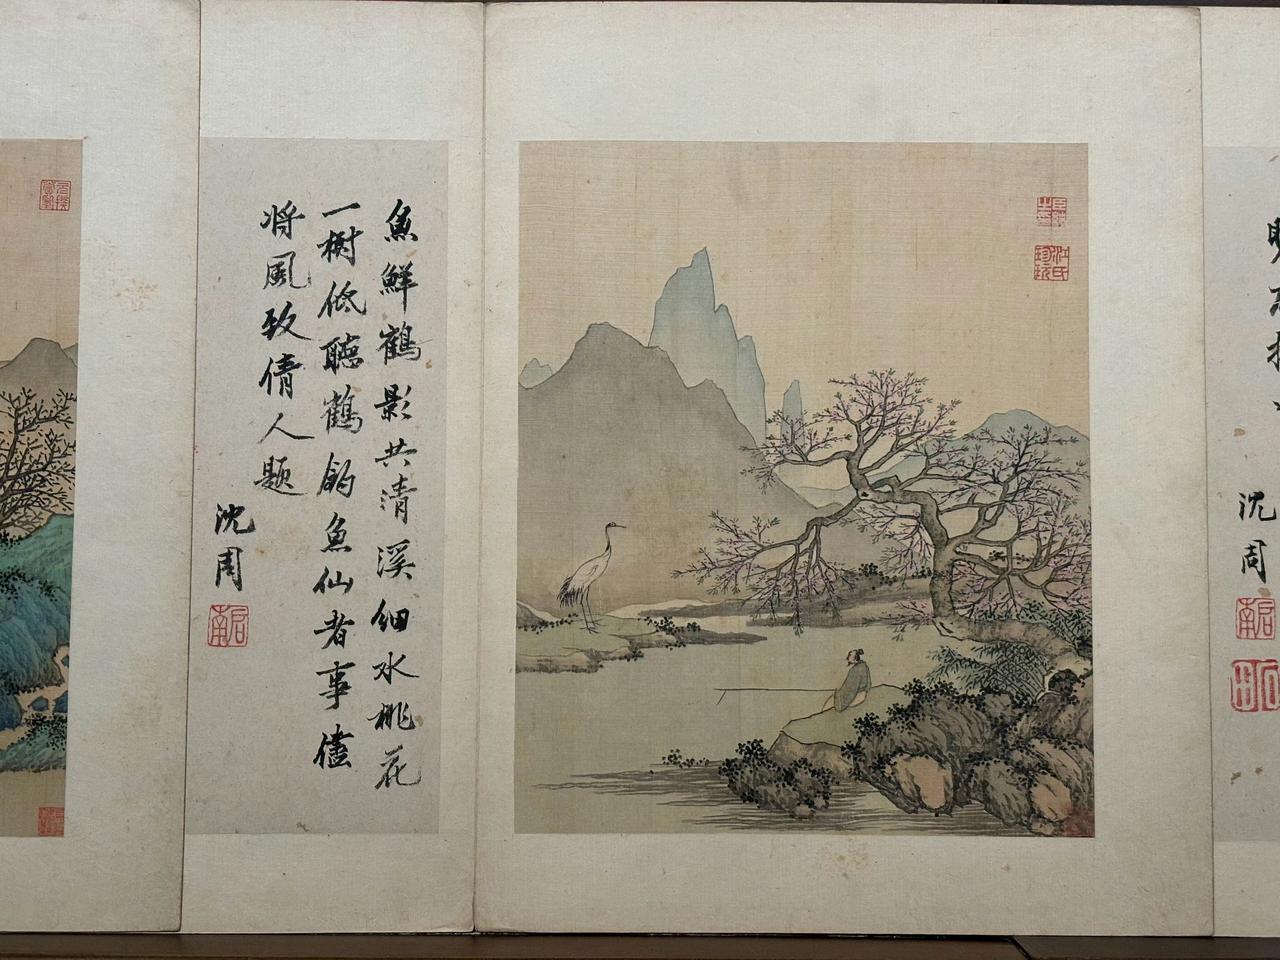 沈周
启南
魚鮮鶴影共清溪細水桃花
一樹低聽鶴釣魚仙者事儘
将風致倩人題
沈周
启南